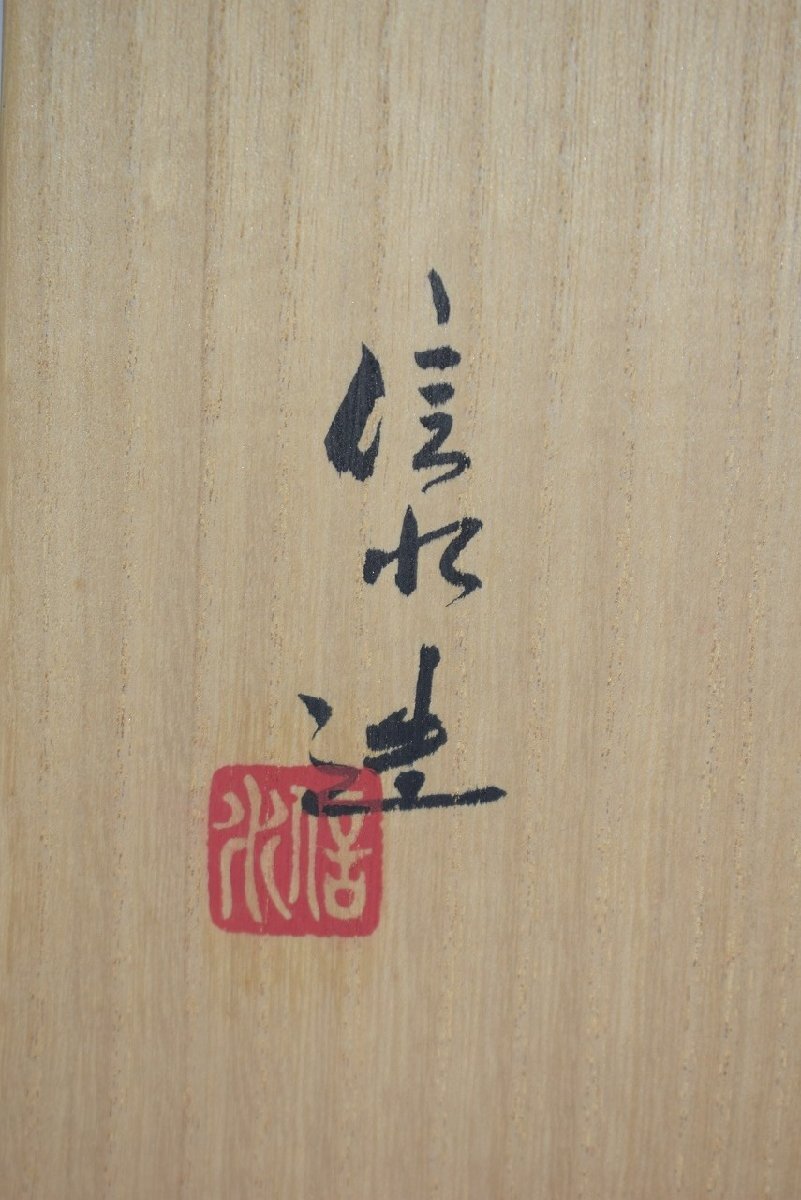 信水造
信水